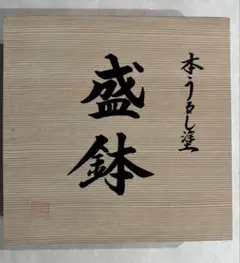 本うるし塗
盛鉢